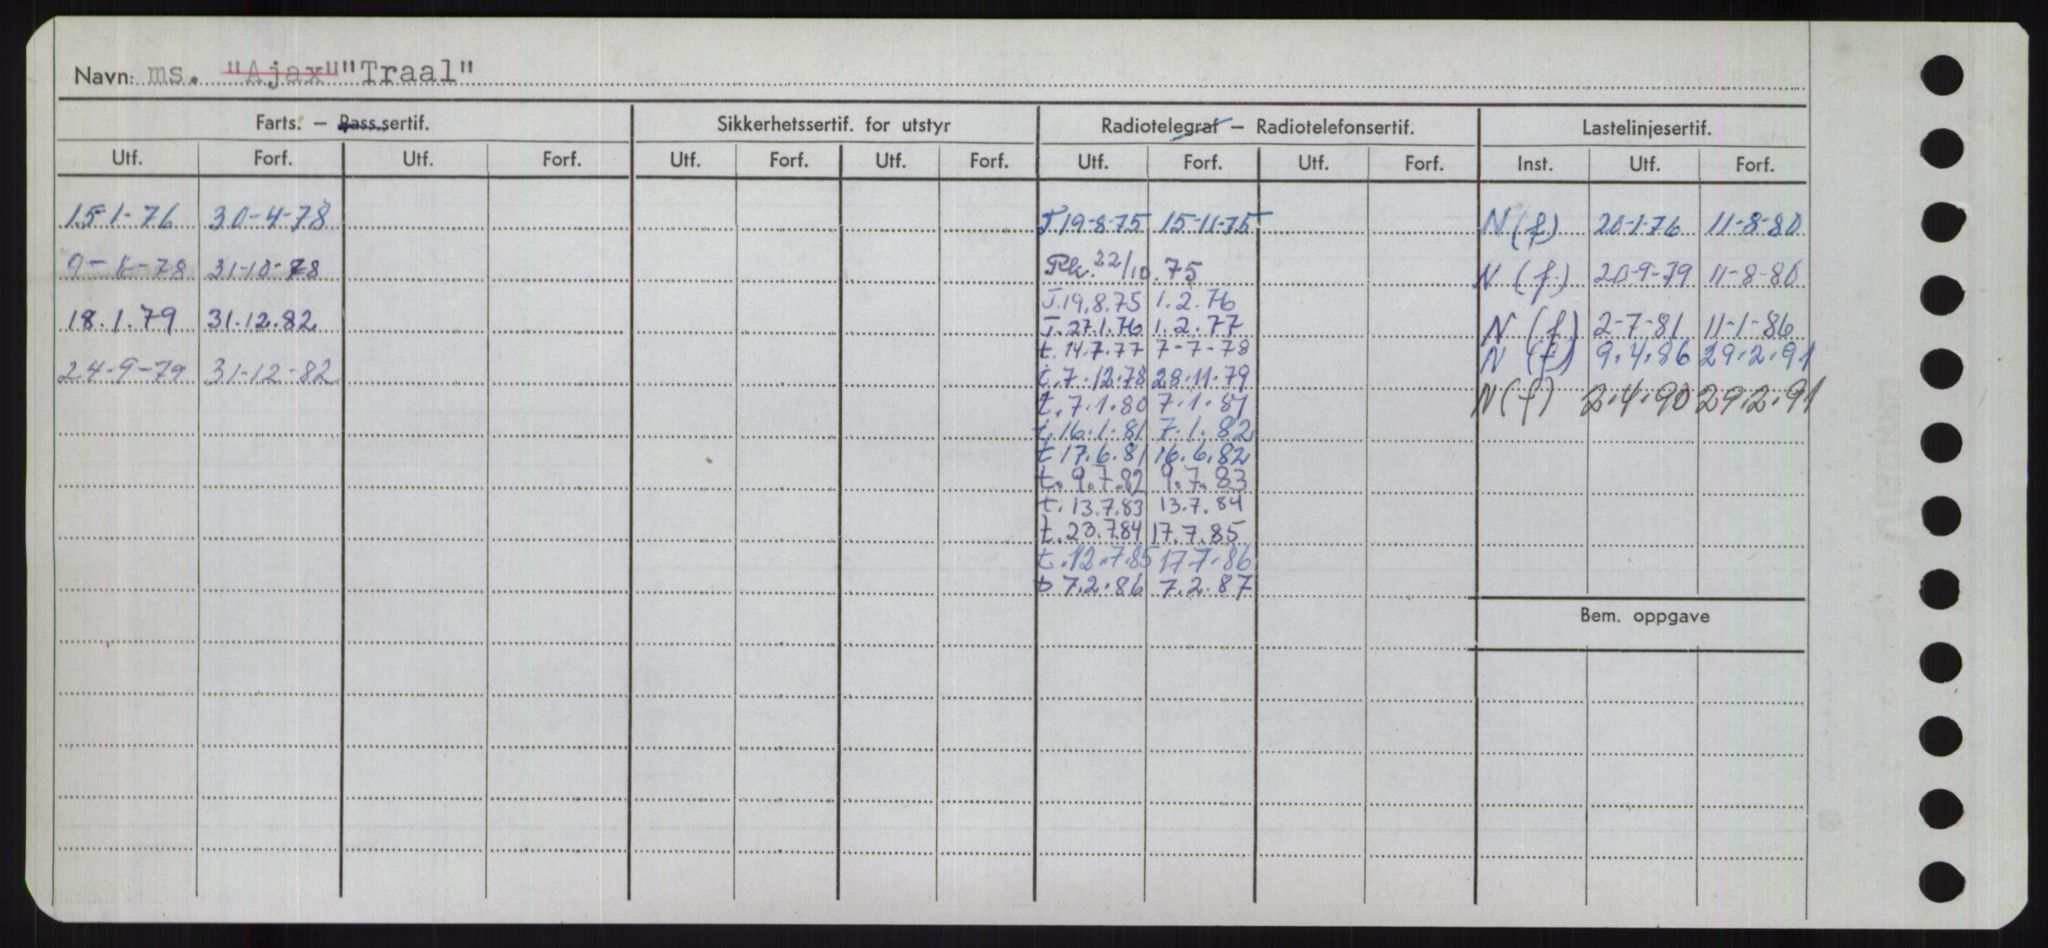 Navn: ms. "Ajax" "Traal"
Farts. – Pass.sertif. Sikkerhetssertif. for utstyr Radiotelegraf – Radiotelefonsertif. Lastelinjesertif.
Utf. Forf. Utf. Forf. Utf. Forf. Utf. Forf. Utf. Forf. Utf. Forf. Inst. Utf. Forf.
15-1-76 30-4-78 T.19-8-75 15-11-75 N(f) 20-1-76 11-8-80
9-8-78 31-10-78 22/10.75 N (f) 20-9-79 11-8-80
T.19.8.75 1.2.76
18.1.79 31.12.82 T.27.1.76 1.2.77 N (f) 2-7-81 11-1-86
t.14.7.77 7-7-78 N (f) 9.4.86 29.2.91
24-9-79 31-12-82 t.7.12.78 28.11.79
t.7.1.80 7.1.81 N(f) 2.4.90 29.2.91
t.16.1.81 7.1.82
t 17.6.81 16.6.82
t. 9.7.82 9.7.83
t. 13.7.83 13.7.84
t.23.7.84 17.7.85
t.12.7.85 17.7.86
t 7.2.86 7.2.87
Bem. oppgave